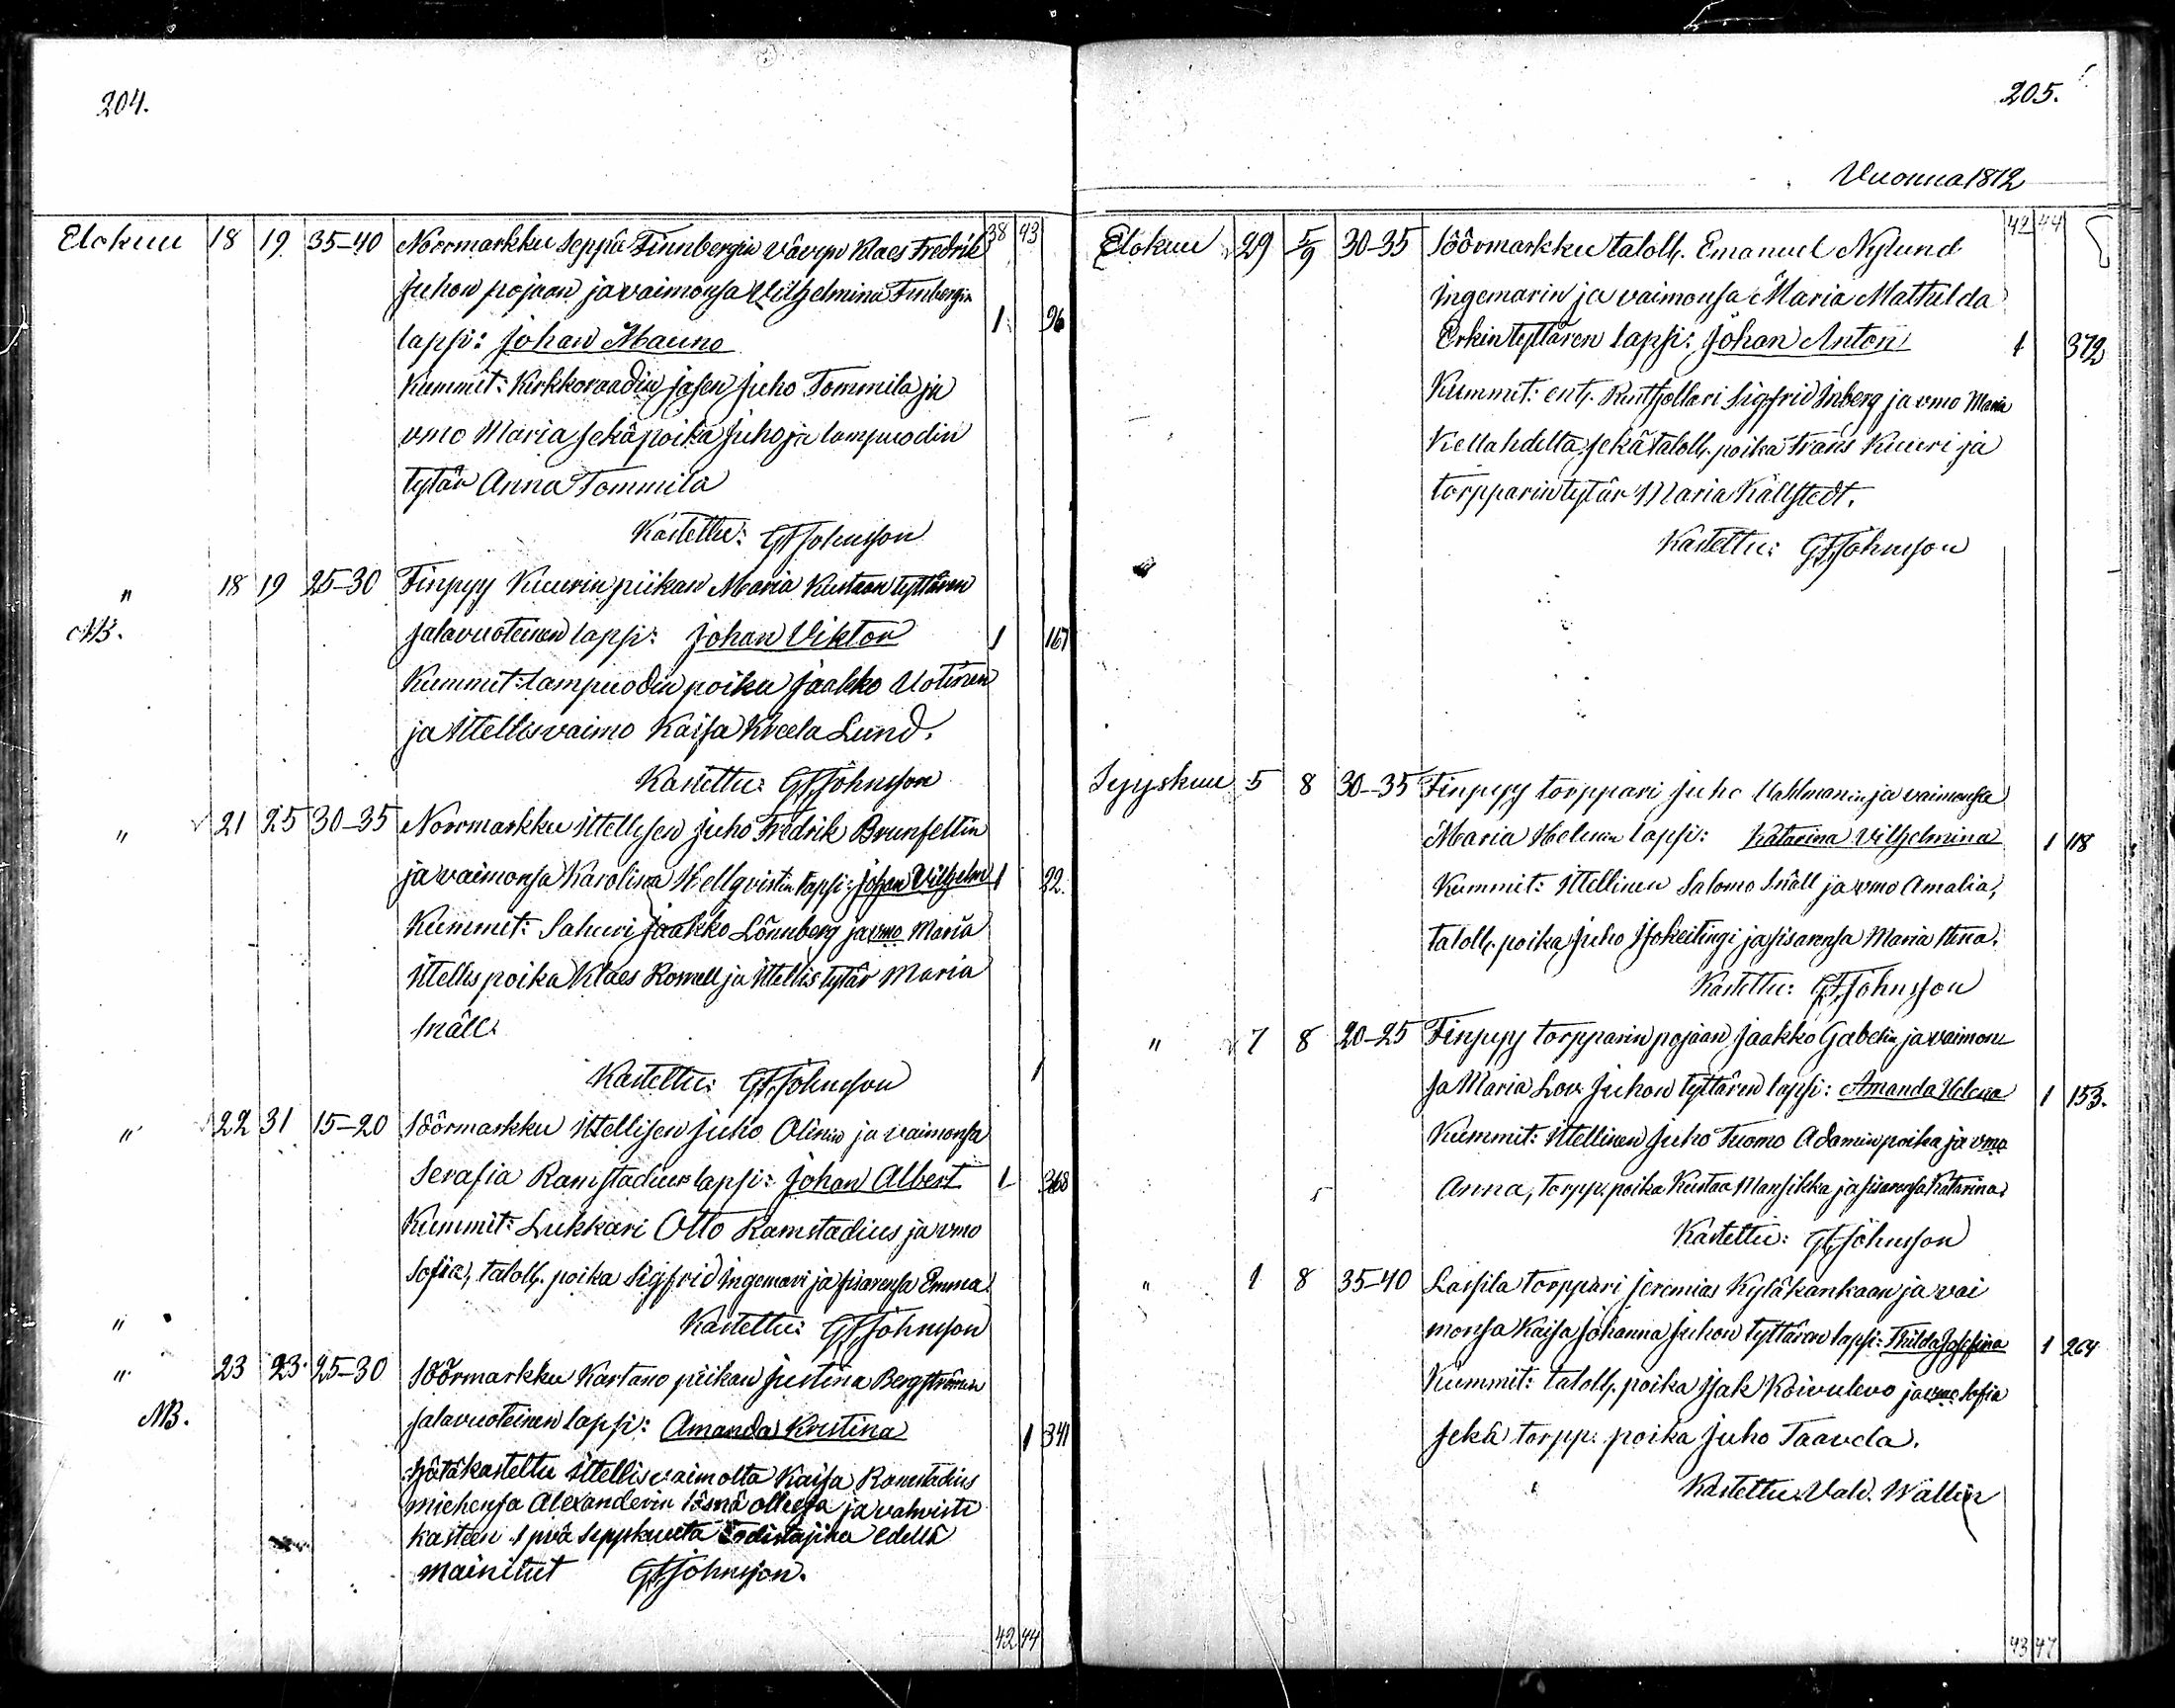 204.
38 43
Elokuu 18 19 35-40 Norrmarkku Seppä Finnbergin vävyn Klaes Fredrik
Juhon pojaan ja vaimonsa Vilhelmina Finbergin
lapsi: Johan Mauno 1 96
Kummit: Kirkkoraadin jäsen Juho Tommila ja
vmo Maria sekä poika Juho ja lampuodin
tytär Anna Tommila
Kastettu: GFJohnsson
" 18 19 25-30 Finpyy Kuurin piikan Maria Kustaan tyttären
NB. salavuoteinen lapsi: Johan Viktor 1 167
Kummit: lampuodin poika Jaakko Uotinen
ja Ittellis vaimo Kaisa Lund.
Kastettu: GFJohnsson
" 21 25 30-35 Norrmarkku Ittellisen Juho Fredrik Brunfeltin
ja vaimonsa Karolina Hellqvistin lapsi: Johan Vilhelm 1 22.
Kummit: Sahuri Jaakko Lönnberg ja vmo Maria
Ittellis poika Klaes Romell ja Ittellis tytär Maria
Snäll.
Kastettu: GFJohnsson 1
" 22 31 15-20 Söörmarkku Ittellisen Juho Olinin ja vaimonsa
Serafia Ramstadius lapsi: Johan Albert 1 368
Kummit: Lukkari Otto Ramstadius ja vmo
Sofia, taloll. poika Sigfrid Ingemari ja sisarensa Emma.
" Kastettu: GFJohnsson
" 23 23 25-30 Söörmarkku Kartano piikan Justina Bergströmin
NB. salavuoteinen lapsi: Amanda Kristina 1 341
Hätäkastettu Ittellis vaimolta Kaisa Ramstadius
miehensä Alexanderin läsnä ollessa ja vahvisti
kasteen 1 pvä Syyskuuta todistajina edellä
mainitut GFJohnsson.
42 44
205.
Vuonna 1872
42 44
Elokuu 29 5/9 30-35 Söörmarkku taloll. Emanuel Nylund
Ingemarin ja vaimonsa Maria Mathilda
Erkintyttären lapsi: Johan Anton 1 372
Kummit: ent. Rusthollari Sigfrid Inberg ja vmo Maria
Kellahdelta, sekä taloll. poika Frans Kuuri ja
torpparin tytär Maria Källstedt.
Kastettu: GFJohnsson
Syyskuu 5 8 30-35 Finpyy torppari Juho Uahlmanin ja vaimonsa
Maria Helenan lapsi: Katarina Vilhelmina 1 118
Kummit: Ittellinen Salomo Snäll ja vmo Amalia,
taloll. poika Juho Isokeitingi ja sisarensa Maria Stina.
Kastettu: GFJohnsson
" 7 8 20-25 Finpyy torpparin pojaan Jaakko Gabelin ja vaimon-
sa Maria Lov. Juhon tyttären lapsi: Amanda Helena 1 153.
Kummit: Ittellinen Juho Tuomo Adamin poika ja vmo
Anna, torpp. poika Kustaa Mansikka ja sisarensa Katarina.
Kastettu: GFJohnsson
" 1 8 35-40 Lassila torppari Jeremias Kyläkankaan ja vai
monsa Kaisa Johanna Juhon tyttären lapsi: Thilda Josefina 1 264
Kummit: taloll. poika Isak Koivulevo ja vmo Sofia
sekä torpp. poika Juho Taavela.
Kastettu: Vald. Wallin
43 47